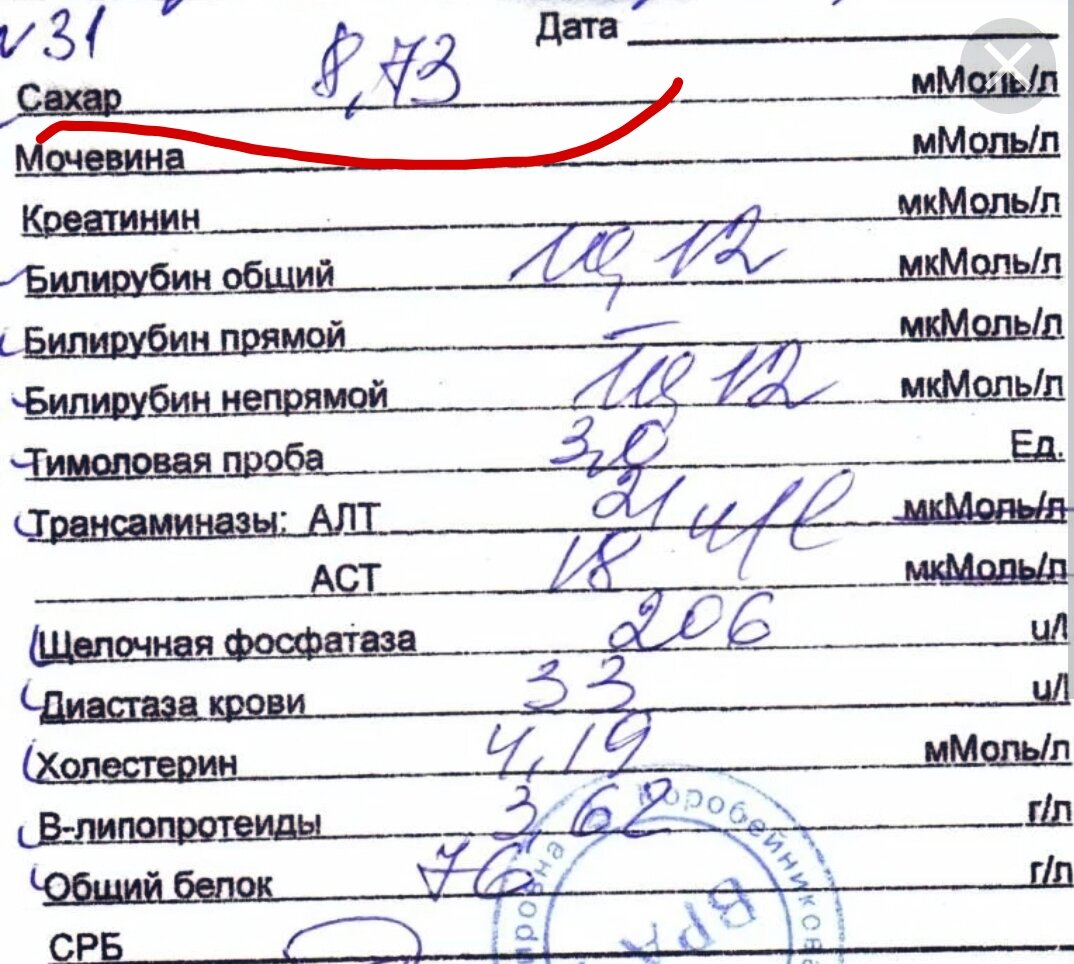 №31
Дата
Сахар 8,73 мМоль/л
Мочевина мМоль/л
Креатинин мкМоль/л
Билирубин общий 12 мкМоль/л
Билирубин прямой – мкМоль/л
Билирубин непрямой 12 мкМоль/л
Тимоловая проба 3,0 Ед.
Трансаминазы: АЛТ 21 u/l мкМоль/л
АСТ 18 мкМоль/л
Щелочная фосфатаза 206 u/l
Диастаза крови 33 u/l
Холестерин 4,19 мМоль/л
В-липопротеиды 3,62 г/л
Общий белок 76 г/л
СРБ
Коробейникова
ВРА